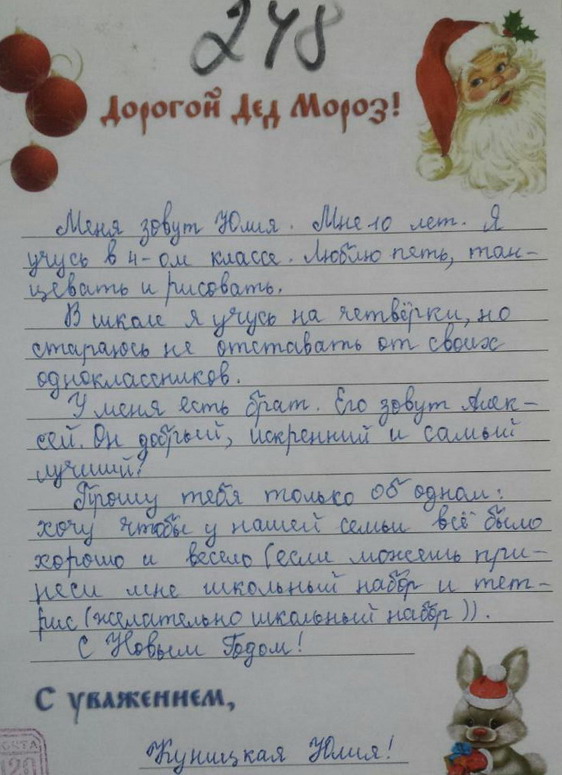 248
Дорогой Дед Мороз!
Меня зовут Юлия. Мне 10 лет. Я
учусь в 4-ом классе. Люблю петь, тан-
цевать и рисовать.
В школе я учусь на четвёрки, но
стараюсь не отставать от своих
одноклассников.
У меня есть брат. Его зовут Алек-
сей. Он добрый, искренний и самый
лучший!
Прошу тебя только об одном:
хочу чтобы у нашей семьи всё было
хорошо и весело (если можешь при-
неси мне школьный набор и тет-
рис (желательно школьный набор)).
С Новым Годом!
С уважением,
Куницкая Юлия!